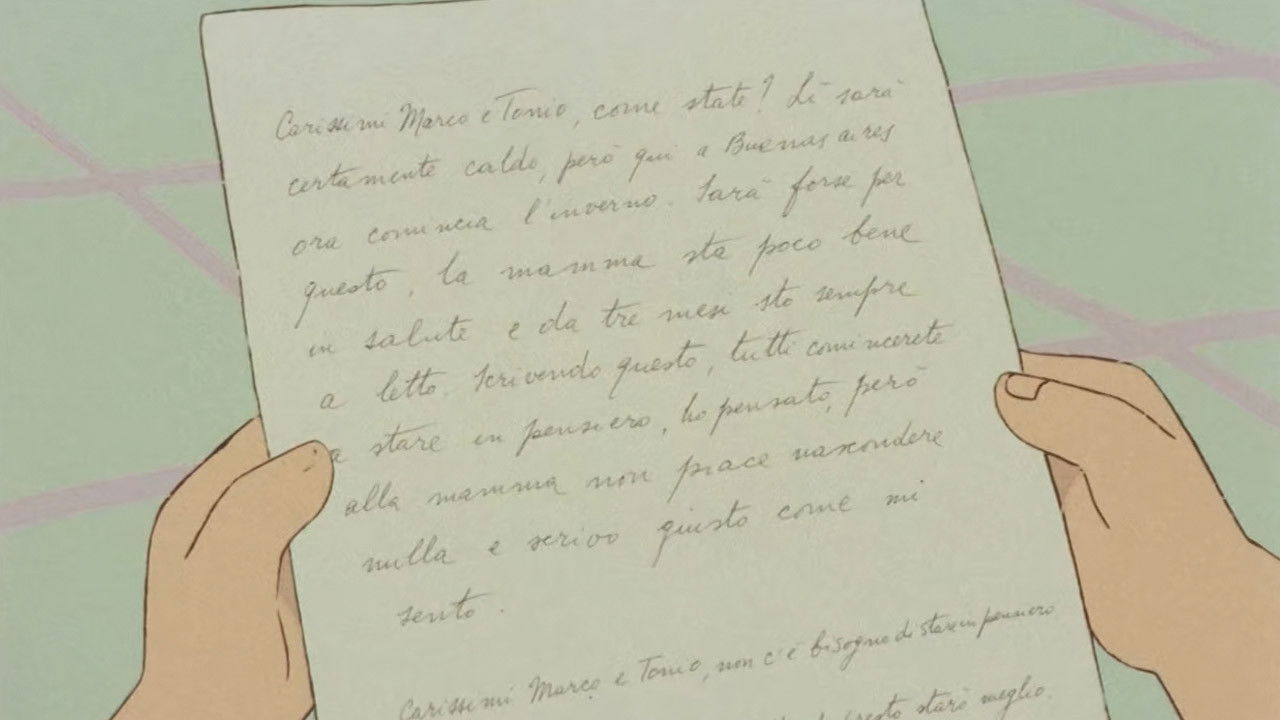 Carissimi Marco e Tonio, come state? Lì sarà
certamente caldo, però qui a Buenas aires
ora comincia l'inverno. Sarà forse per
questo, la mamma sta poco bene
in salute e da tre mesi sto sempre
a letto. Scrivendo questo, tutti comincerete
a stare in pensiero, ho pensato, però
alla mamma non piace nascondere
nulla e scrivo giusto come mi
sento.
Carissimi Marco e Tonio, non c'è bisogno di stare in pensiero
presto starò meglio.